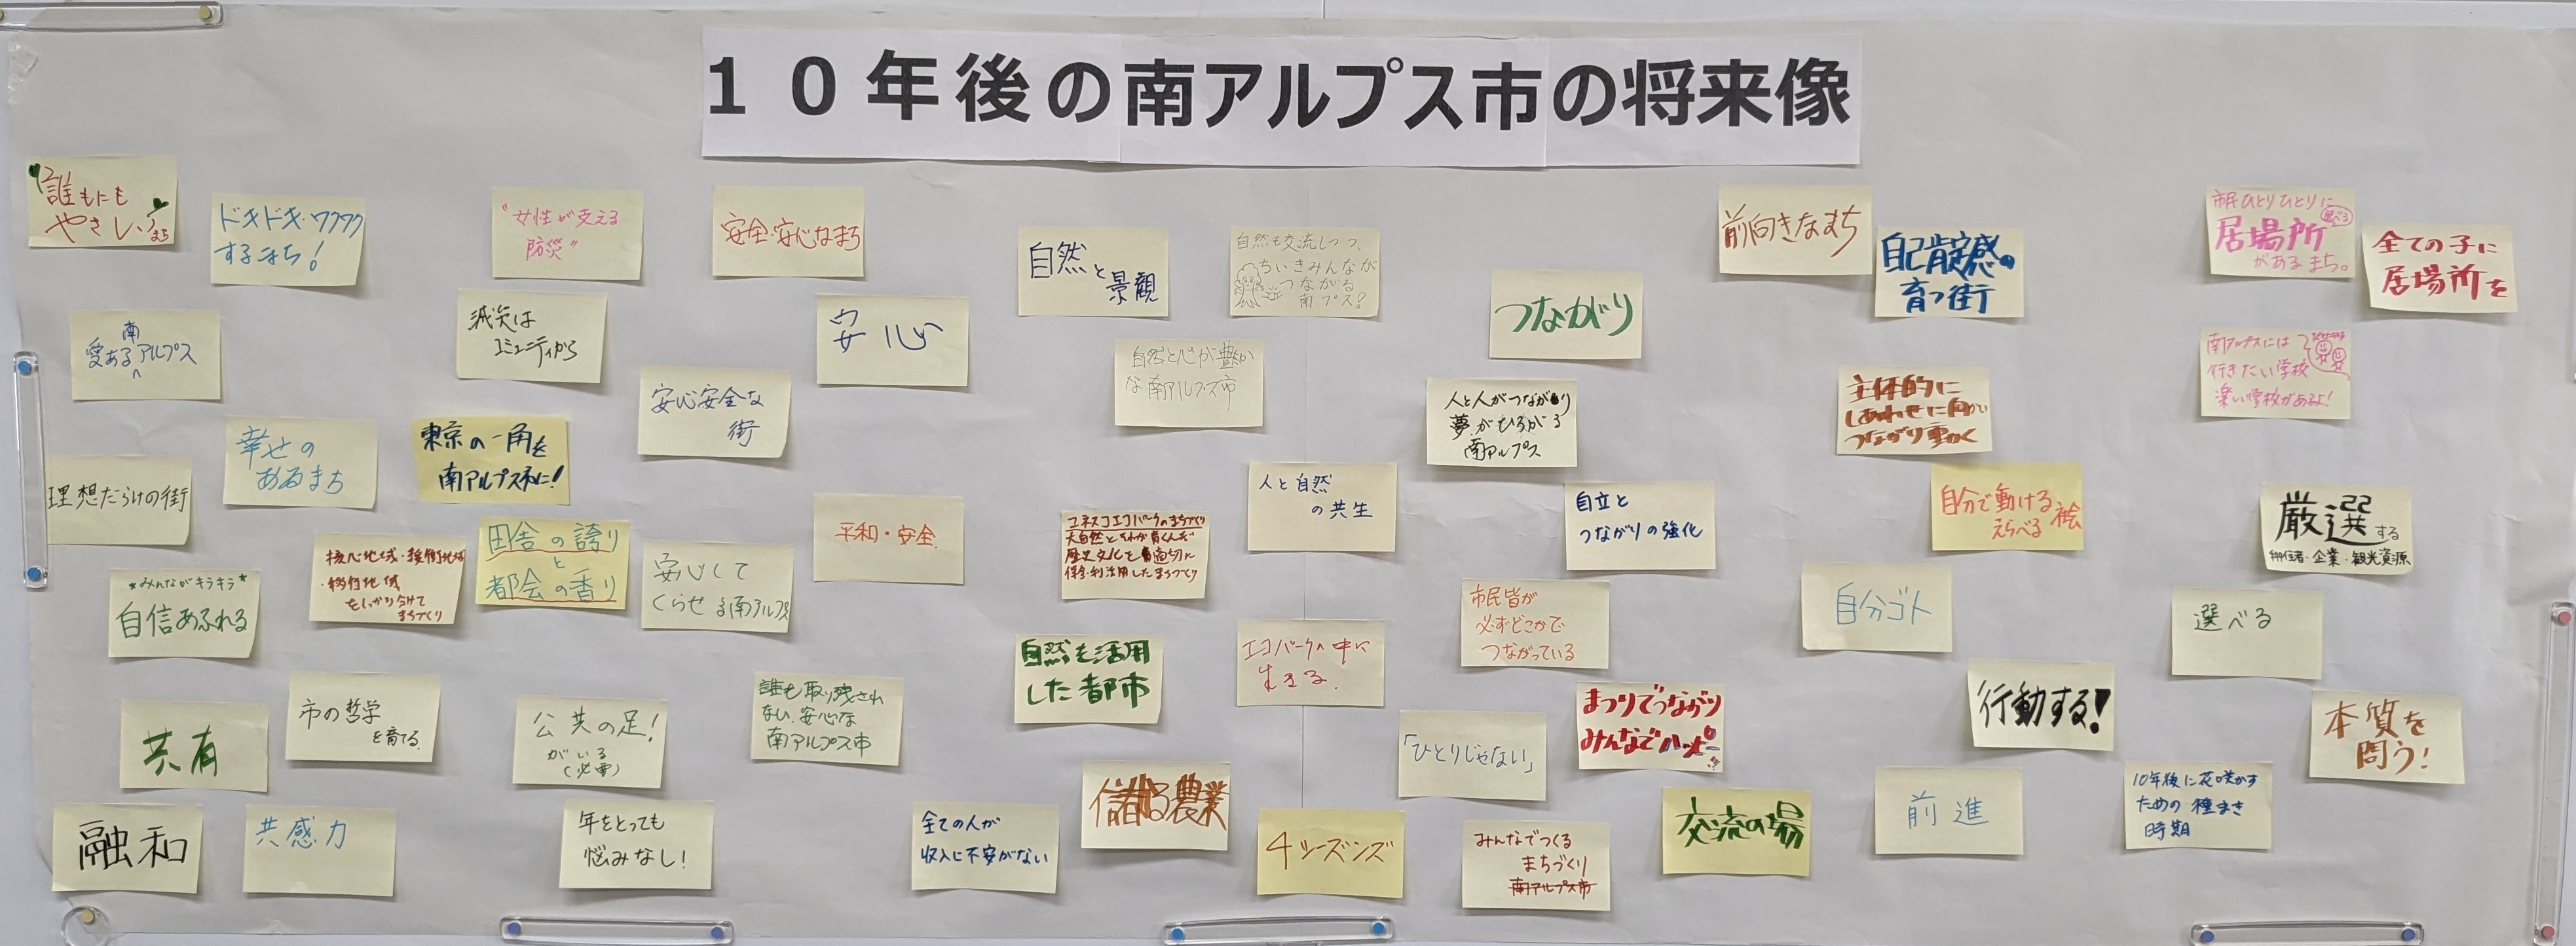 10年後の南アルプス市の将来像
誰もにも
やさしい
まち
ドキドキ・ワクワク
するまち!
"女性が支える
防災"
安全・安心なまち
自然と
景観
自然も交流しつつ、
ちいきみんなが
つながる
南プス!
つながり
前向きなまち
自己肯定感の
育つ街
市民ひとりひとりに
選べる
居場所
があるまち。
全ての子に
居場所を
南
愛あるアルプス
減災は
コミュニティから
安心
安心安全な
街
自然と心が豊か
な南アルプス市
人と人がつながり
夢がひろがる
南アルプス
主体的に
しあわせに向かい
つながり動く
南アルプスには
行きたい学校
楽しい学校があるよ!
幸せの
あるまち
東京の一角を
南アルプス市に!
理想だらけの街
核心地域・緩衝地域
・移行地域
をしっかり分けて
まちづくり
田舎の誇り
と
都会の香り
安心して
くらせる南アルプス
平和・安全
ユネスコエコパークのまちづくり
大自然とそれが育くんだ
歴史文化を適切に
保全・利活用したまちづくり
人と自然
の共生
自立と
つながりの強化
自分で動ける
えらべる
厳選する
移住者・企業・観光資源
*みんながキラキラ*
自信あふれる
自然を活用
した都市
エコパークの中に
生きる.
市民皆が
必ずどこかで
つながっている
自分ゴト
選べる
共有
市の哲学
を育てる.
公共の足!
がいる
(必要)
誰も取り残され
ない、安心な
南アルプス市
「ひとりじゃない」
まつりでつながり
みんなでハッピー!!
行動する!
本質を
問う!
融和
共感力
年をとっても
悩みなし!
全ての人が
収入に不安がない
儲る農業
4シーズンズ
みんなでつくる
まちづくり
南アルプス市
交流の場
前進
10年後に花咲かす
ための種まき
時期